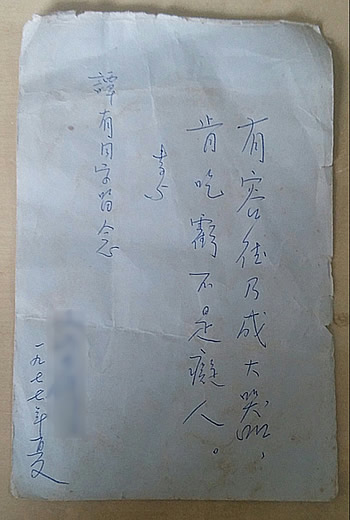 有容德乃成大器、
肯吃虧不是癡人。
書与
譚有同学留念
一九七七年夏